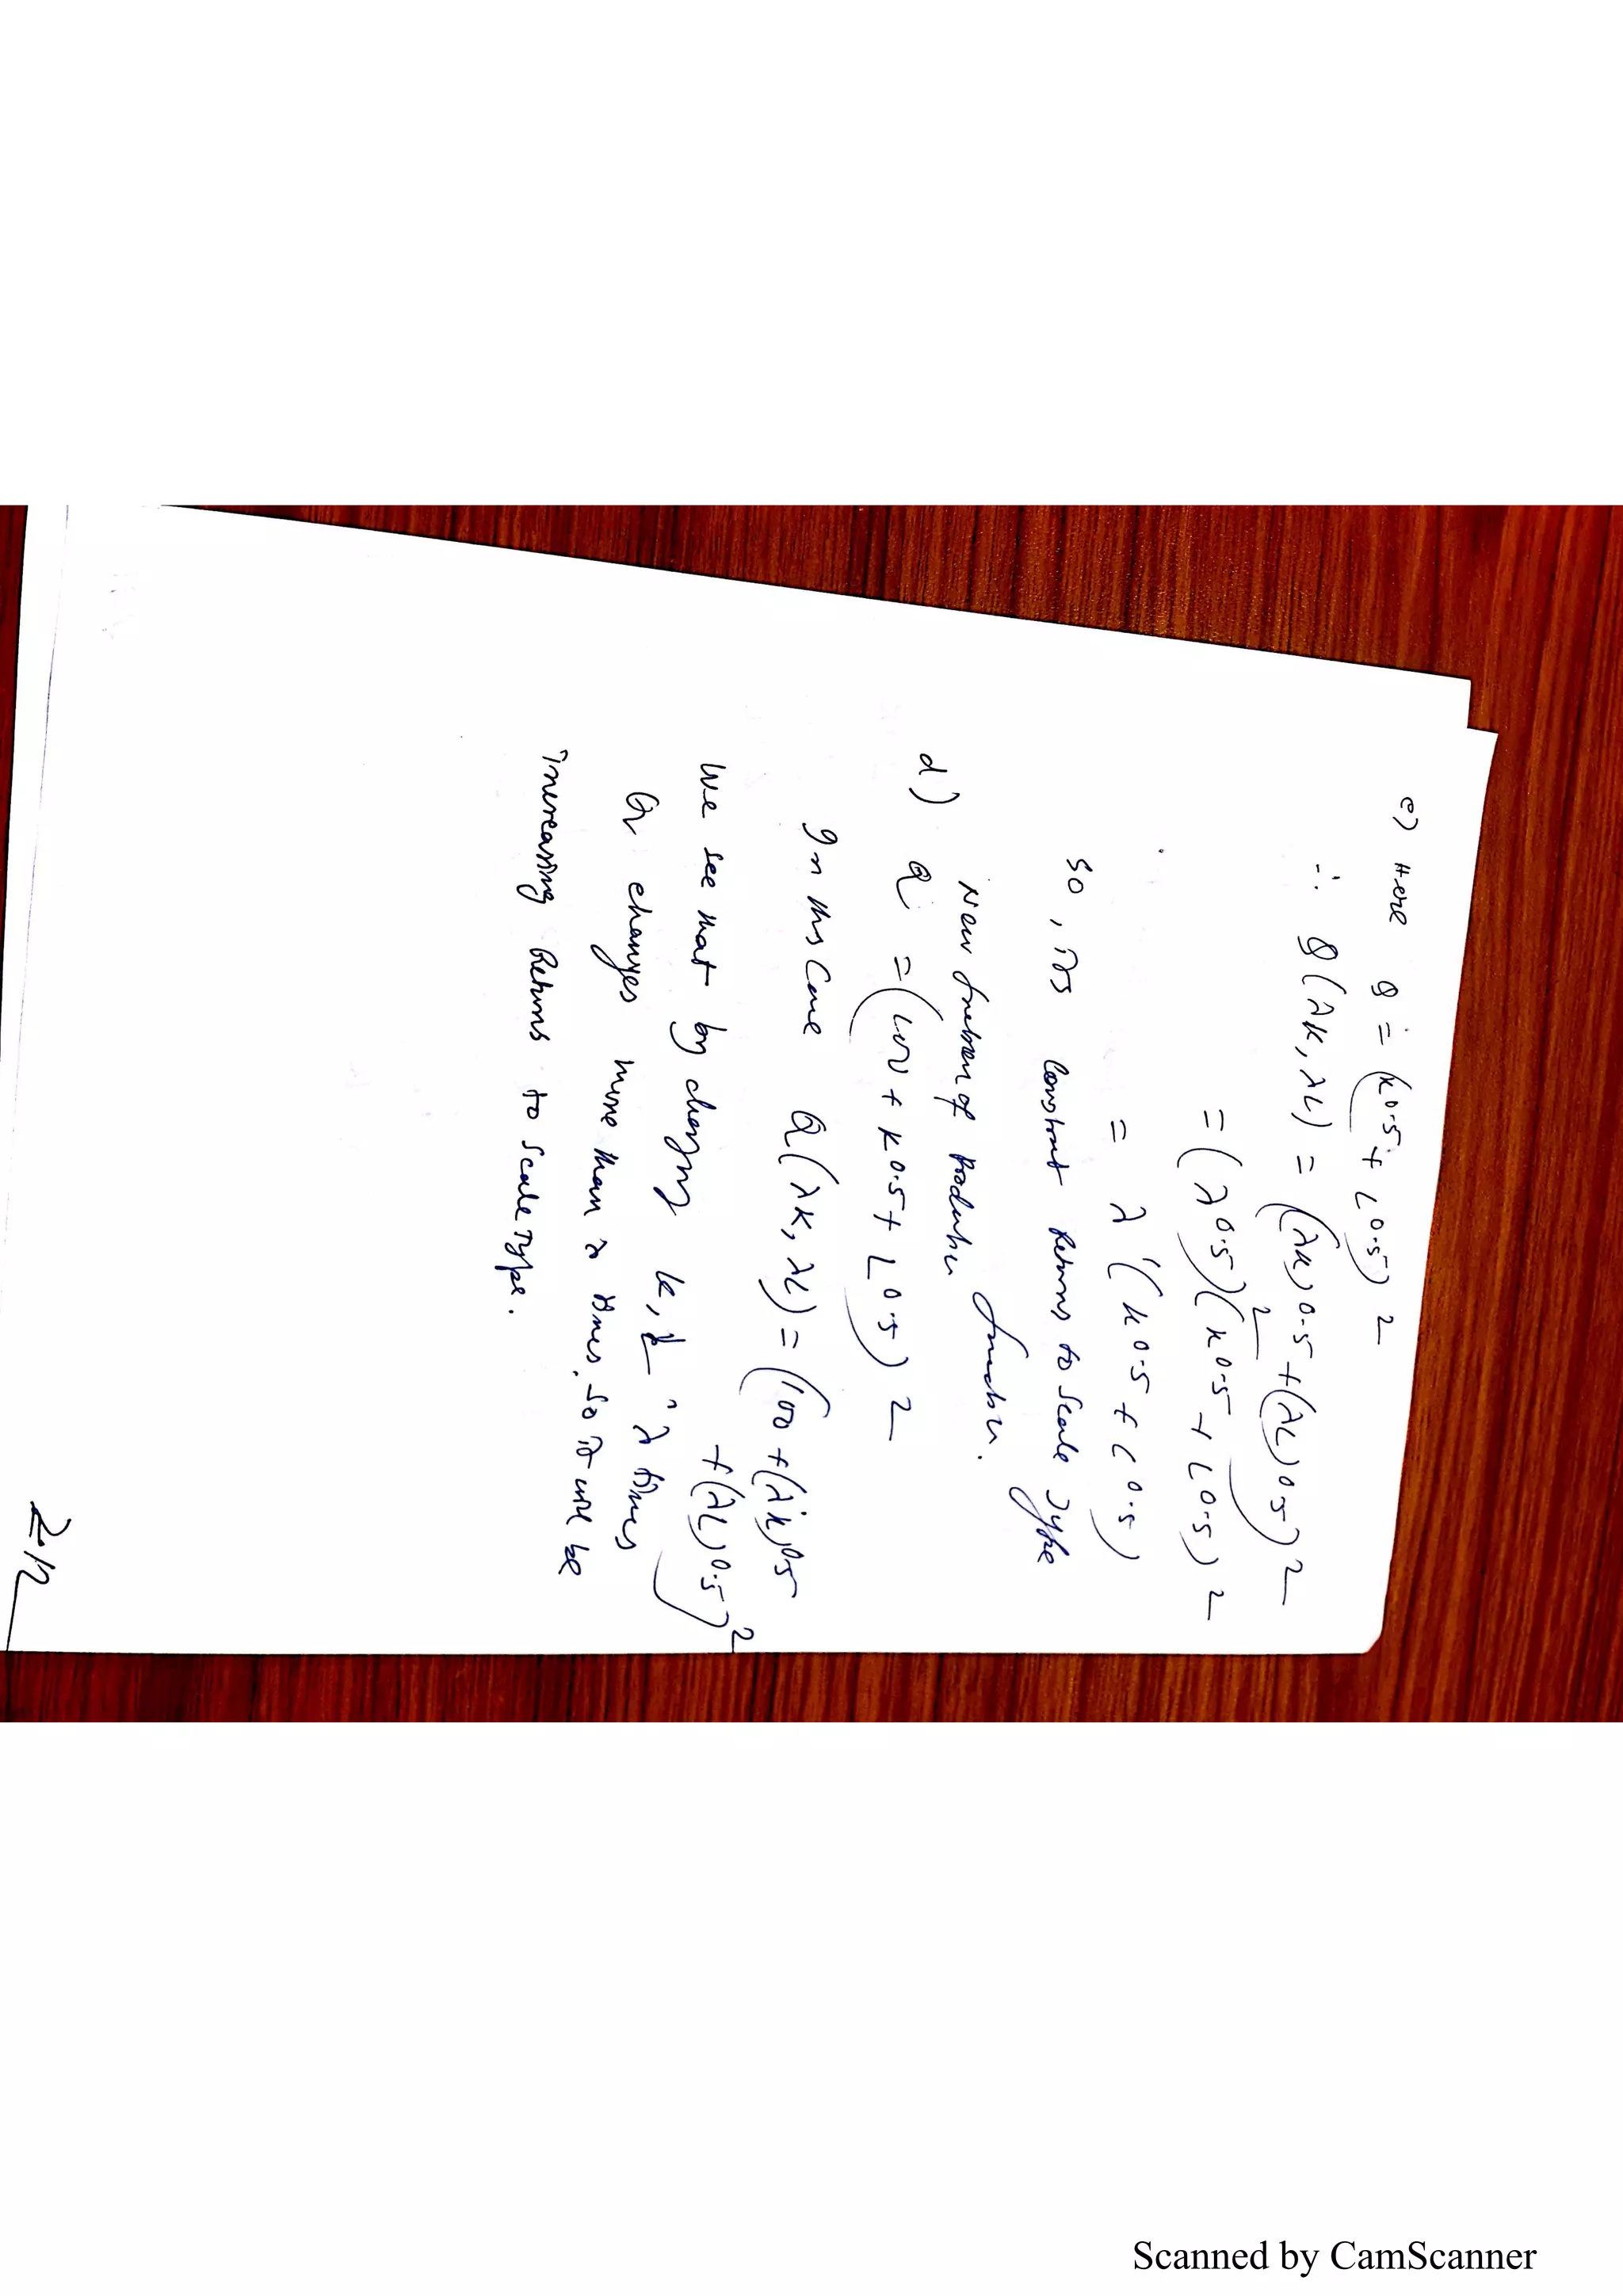 c) Here Q = (K0.5 + L0.5) 2
∴ Q(λK, λL) = ((λK)0.5 + (λL)0.5) 2
= (λ0.5)2 (K0.5 + L0.5) 2
= λ (K0.5 + L0.5)
So, its Constant Returns to Scale Type
function.
New function of Production
d) Q = (100 + K0.5 + L0.5) 2
In this Case Q(λK, λL) = (100 + (λK)0.5
+ (λL)0.5)2
We see that by changing K, L λ times
Q changes more than λ times. So it will be
increasing Returns to Scale Type.
Scanned by CamScanner